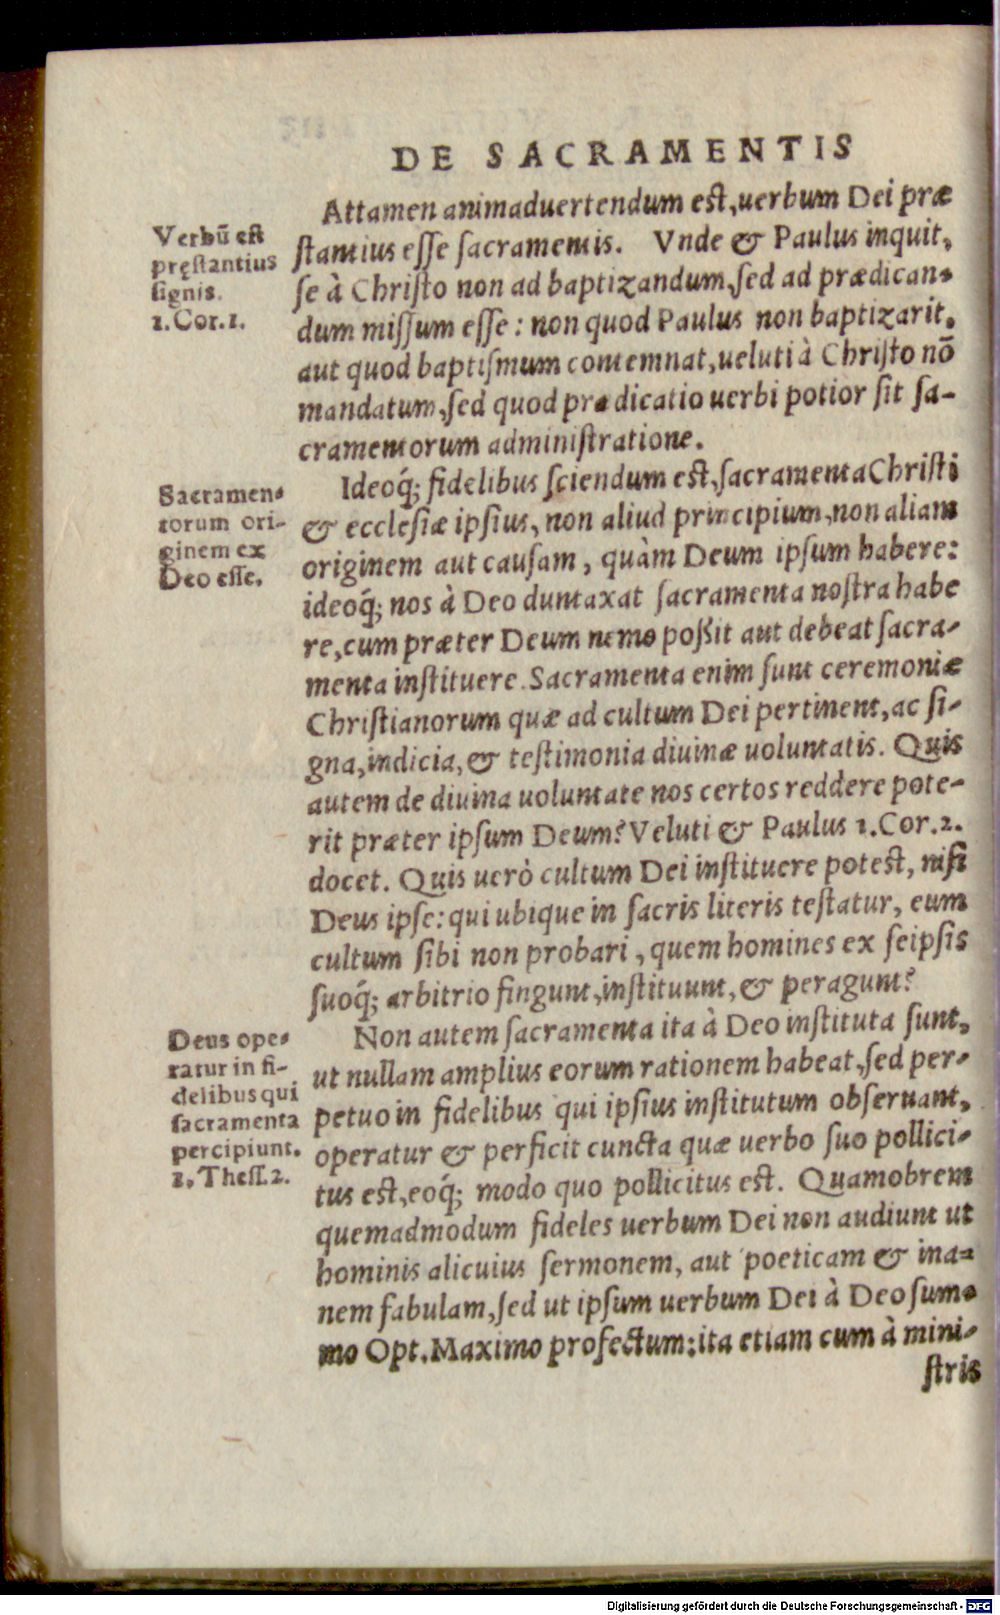 DE SACRAMENTIS
Attamen animaduertendum est, uerbum Dei præ
stantius esse sacramentis. Vnde & Paulus inquit,
se à Christo non ad baptizandum, sed ad prædican-
dum missum esse: non quod Paulus non baptizarit,
aut quod baptismum contemnat, ueluti à Christo nō
mandatum, sed quod prædicatio uerbi potior sit sa-
cramentorum administratione.
Verbū est
pręstantius
signis.
1. Cor. 1.
Ideoq́; fidelibus sciendum est, sacramenta Christi
& ecclesiæ ipsius, non aliud principium, non aliam
originem aut causam, quàm Deum ipsum habere:
ideoq́; nos à Deo duntaxat sacramenta nostra habe
re, cum præter Deum nemo poßit aut debeat sacra-
menta instituere. Sacramenta enim sunt ceremoniæ
Christianorum quæ ad cultum Dei pertinent, ac si-
gna, indicia, & testimonia diuinæ uoluntatis. Quis
autem de diuina uoluntate nos certos reddere pote-
rit præter ipsum Deum? Veluti & Paulus 1. Cor. 2.
docet. Quis uerò cultum Dei instituere potest, nisi
Deus ipse: qui ubique in sacris literis testatur, eum
cultum sibi non probari, quem homines ex seipsis
suoq́; arbitrio fingunt, instituunt, & peragunt?
Sacramen-
torum ori-
ginem ex
Deo esse.
Non autem sacramenta ita à Deo instituta sunt,
ut nullam amplius eorum rationem habeat, sed per-
petuo in fidelibus qui ipsius institutum obseruant,
operatur & perficit cuncta quæ uerbo suo pollici-
tus est, eoq́; modo quo pollicitus est. Quamobrem
quemadmodum fideles uerbum Dei non audiunt ut
hominis alicuius sermonem, aut poeticam & ina-
nem fabulam, sed ut ipsum uerbum Dei à Deo sum-
mo Opt. Maximo profectum: ita etiam cum à mini-
stris
Deus ope-
ratur in fi-
delibus qui
sacramenta
percipiunt.
1. Thess. 2.
Digitalisierung gefördert durch die Deutsche Forschungsgemeinschaft - DFG